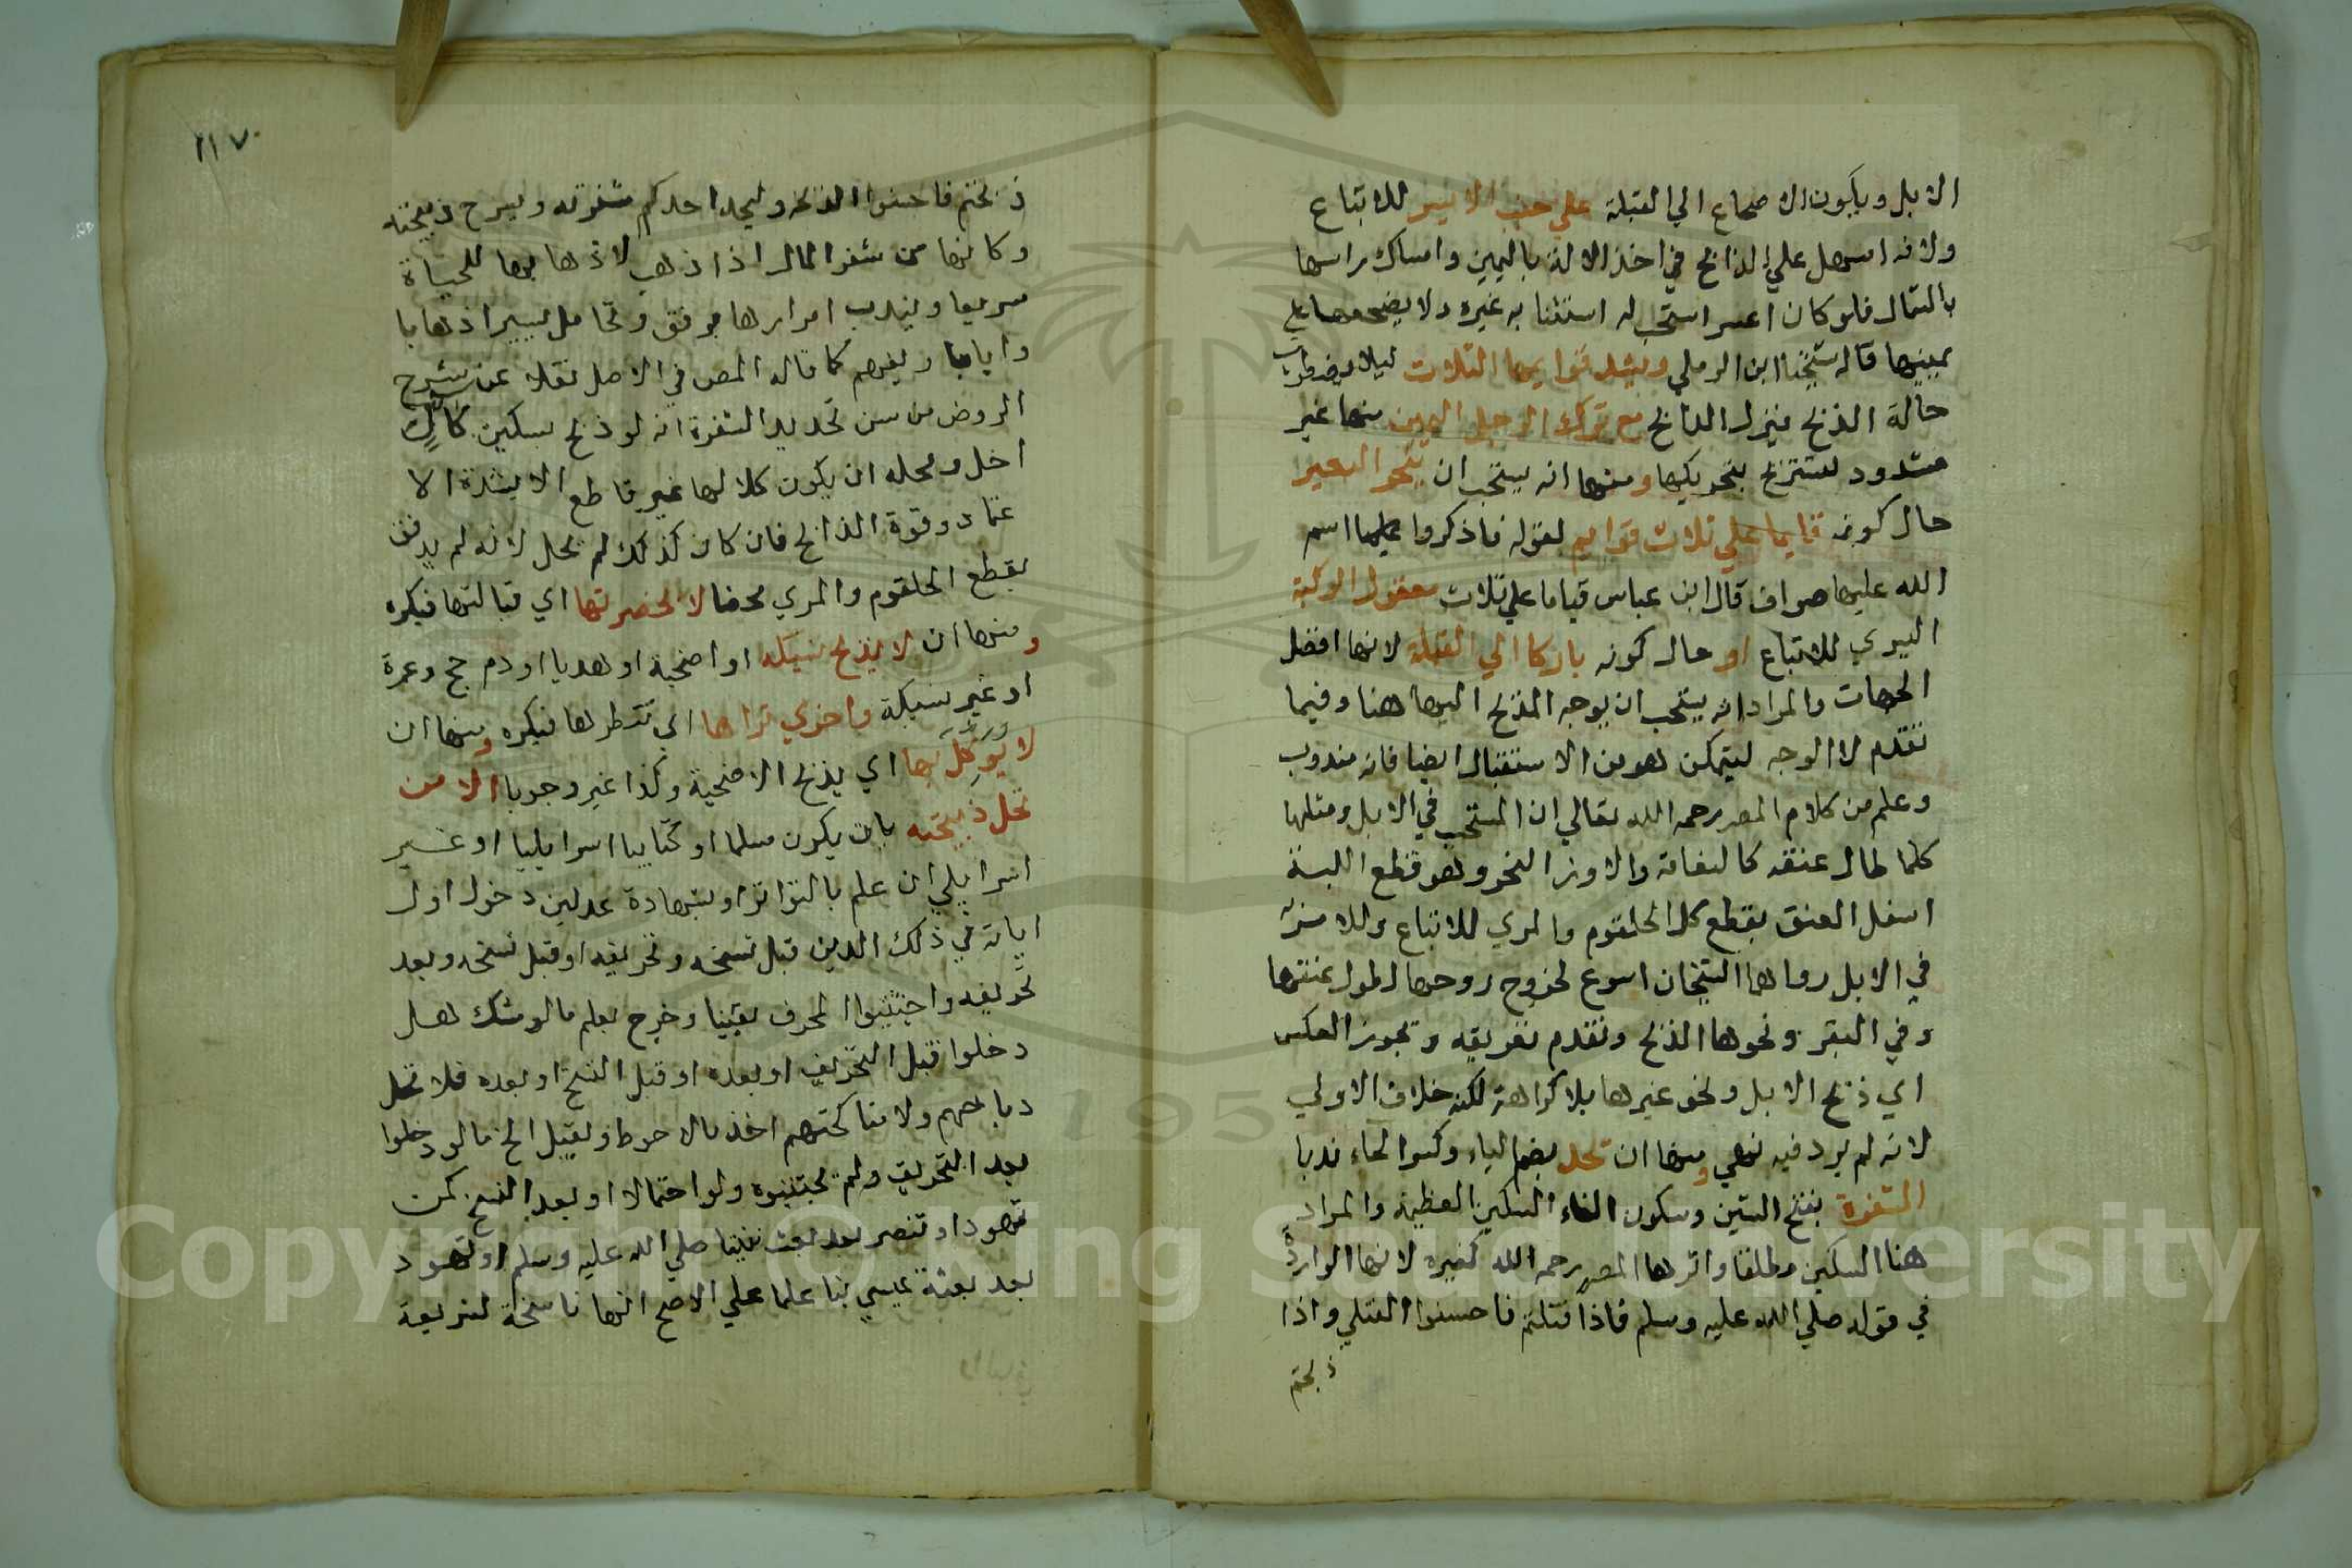 الابل ويكون الاضجاع الي القبلة علي جنب الايسر للاتباع
ولانه اسهل علي الذابح في اخذ الالة باليمين وامساك راسها
بالشمال فلو كان اعسر استحب له استنابه غيره ولا يضجعها علي
يمينها قاله شيخنا ابن الرملي ويشد قوايمها الثلاث ليلا يضطرب
حالة الذبح فيزل الذابح مع ترك الرجل اليمين منها غير
مشدود لتستريح بتحريكها ومنها انه يستحب ان ينحر البعير
حال كونه قايما علي ثلاث قوايم لقوله فاذكروا اسم
الله عليها صواف قال ابن عباس قياما علي ثلاث معقول الركبة
اليسري للاتباع او حال كونه باركا الي القبلة لانها افضل
الجهات والمراد انه يستحب ان يوجه المذبح اليها هنا وفيما
تقدم لا الوجه ليتمكن هو من الاستقبال ايضا فانه مندوب
وعلم من كلام المص رحمه الله تعالي ان المستحب في الابل ومثلها
كلما طال عنقه كالنعامة والاوز النحر وهو قطع اللبة
اسفل العنق بقطع كل الحلقوم والمري للاتباع وللامر به
في الابل رواهما الشيخان اسرع لخروج روحها لطول عنقها
وفي البقر ونحوها الذبح وتقدم تعريفه وتجوز العكس
اي ذبح الابل ونحر غيرها بلا كراهة لكنه خلاف الاولي
لانه لم يرد فيه نهي ومنها ان تحد بضم الياء وكسر الحاء ندبا
الشفرة بفتح الشين وسكون الفاء السكين العظيمة والمراد
هنا السكين مطلقا واثرها المص رحمه الله كغيره لانها الواردة
في قوله صلي الله عليه وسلم فاذا قتلتم فاحسنوا القتلي واذا
ذبحتم
٢١٧٠
ذبحتم فاحسنوا الذبحه وليحد احدكم شفرته وليرح ذبيحته
وكانها من شفر المال اذا ذهب لاذهابها للحياة
سريعا ويندب امرارها برفق وتحامل يسير اذهابا
وايابا ويفهم كما قاله المص في الاصل نقلا عن شرح
الروض من سن تحديد الشفرة انه لو ذبح بسكين كالٍّ
احل ومحله ان يكون كلالها غير قاطع الا بشدة الا
عتماد وقوة الذابح فان كان كذلك لم يحل لانه لم يدفف
بقطع الحلقوم والمري محضا لا بحضرتها اي قبالتها فيكره
ومنها ان لا يذبح نسيكه او اضحية او هديا او دم حج وعمرة
او غير نسيكة واخري تراها اي تنظرها فيكره ومنها ان
لا يوكل بها اي بذبح الاضحية وكذا غير وجوبا الا من
تحل ذبيحته بان يكون مسلما او كتابيا اسراييليا او غير
اسراييلي ان علم بالتواتر او بشهادة عدلين دخول اول
ابايه في ذلك الدين قبل نسخه وتحريفه او قبل نسخه وبعد
تحريفه واجتنبوا المحرف يقينا وخرج بعلم ما لو شك هل
دخلوا قبل التحريف او بعده او قبل النسخ او بعده فلا تحل
ذبايحهم ولا مناكحتهم اخذ بالاحوط وبقبل الخ ما لو دخلوا
بعد التحريف ولم يجتنبوه ولو احتمالا او بعد النسخ كمن
تهود او تنصر بعد بعثة نبينا صلي الله عليه وسلم او تهود
بعد بعثة عيسي بنا علما علي الاصح انها ناسخة لشريعة